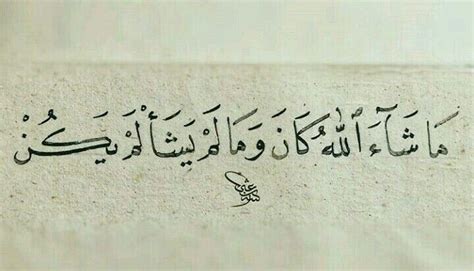 مَا شَآءَ ٱللّٰهُ كَانَ وَمَا لَمْ يَشَأْ لَمْ يَكُنْ